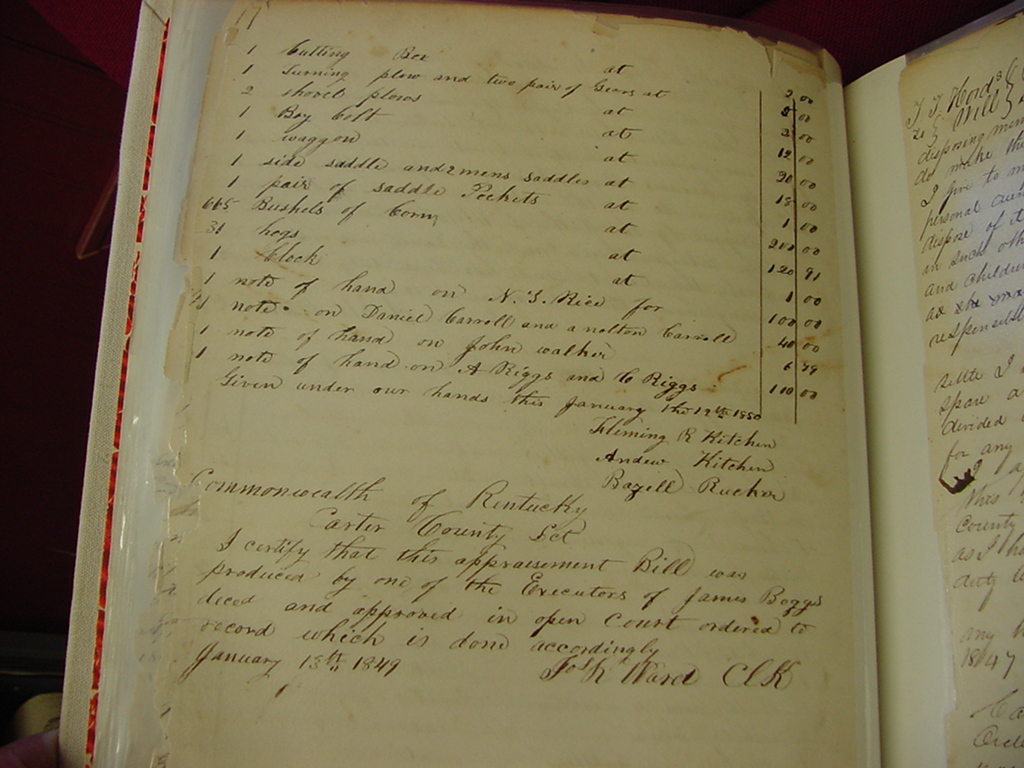 17
1 Cutting Box at 2 00
1 Turning plow and two pair of Gears at 8 00
2 shovel plows at 3 00
1 Boy Colt at 12 00
1 waggon at 30 00
1 side saddle and 2 mens saddles at 18 00
1 pair of saddle Pockets at 1 00
665 Bushels of Corn at 200 00
31 hogs at 120 91
1 Clock at 1 00
1 note of hand on N. G. Rice for 100 00
note on Daniel Carroll and a nolton Carroll 40 00
1 note of hand on John walker 6 79
1 note of hand on A Riggs and C Riggs 110 00
Given under our hands this January the 12th 1850
Fleming R Kitchen
Andrew Kitchen
Bazell Rucker
Commonwealth of Kentucky
Carter County Sct
I certify that this appraisement Bill was
produced by one of the Executors of James Boggs
decd and approved in open Court ordered to
record which is done accordingly
January 15th 1849 Jos R Ward Clk
J. J. Hord's
Will
disposing
do make this
I give to
personal
dispose of it
in such oth
and children
as she ma
responsibl
settle I
spare a
devided
for any
this
County
as I ha
duty
any
1847
Ca